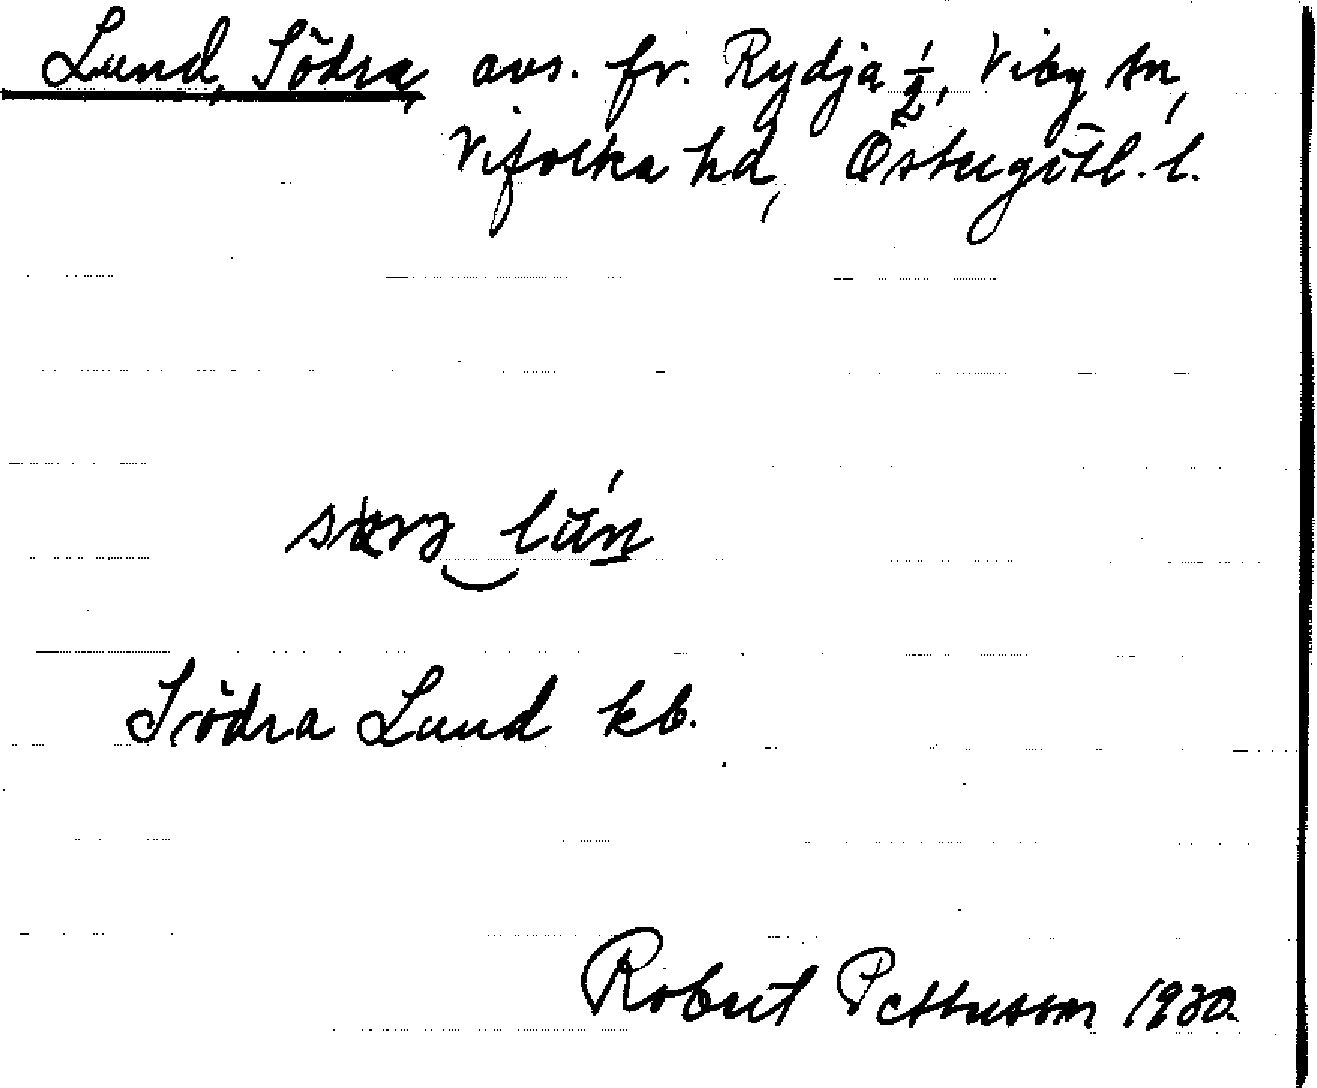 Lund, Södra, avs. fr. Rydja 1/2, Viby sn,
Vifolka hd, Östergötl. l.
Södra Lund kb.
Robert Pettersson 1930.